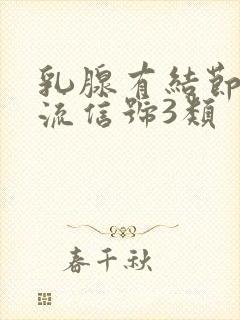 乳腺有結節
流信號3類
春千秋